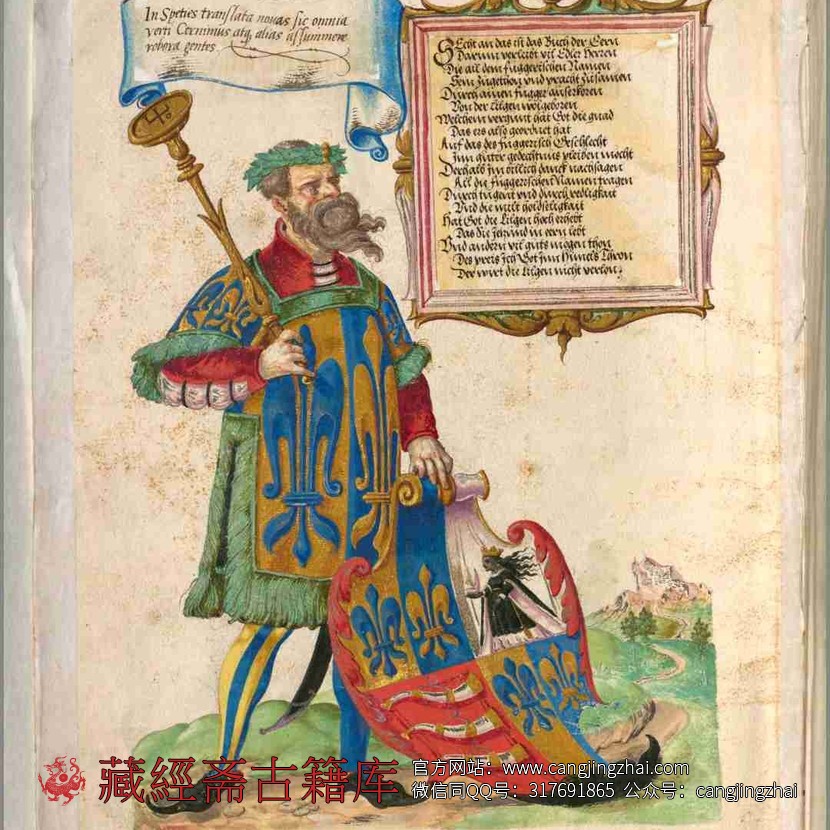 In Species translata nouas sic omnia
verti Cernimus atq, alias assummere
robora gentes
Secht an das ist das Buch der Eern
Darumb verleibt vil Edler Herren
Die all dem Fuggerischen Namen
Sein Zugethon vnd pracht Zusamen
Durch ainen Fugger auserkoren
Von der Lilgen wolgeboren
Welchem vergunt hat Got die gnad
Das ers also geordnet hat
Auf das des Fuggerisch Geschlecht
Inn gutter gedechtnus pleiben mocht
Derhalb Im billich danck nachsagen
All die Fuggerischen Namen tragen
Durch tugent vnd durch redligkait
Vnd die milt holdseligkait
Hat Got die Lilgen hoch erhebt
Das die Jetzund in eern lebt
Vnd andern vil guts mogen thon
Des preis Ich Got Inn Himels Thron
Der wirt die Lilgen nicht verlon
藏經斋古籍库
官方网站：www.cangjingzhai.com
微信同QQ号：317691865 公众号：cangjingzhai